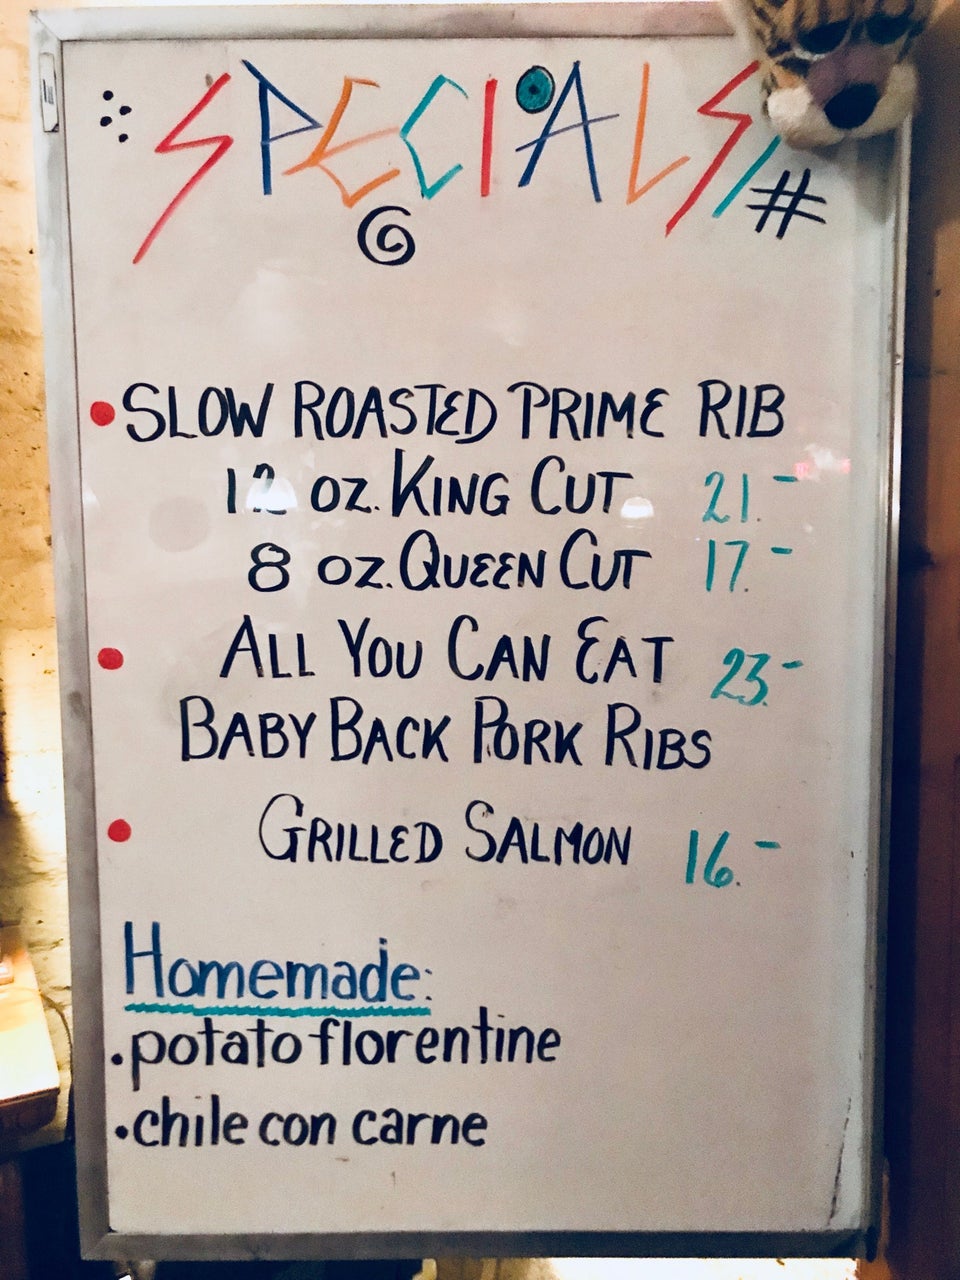 SPECIALS #
• SLOW ROASTED PRIME RIB
12 OZ. KING CUT 21.-
8 OZ. QUEEN CUT 17.-
• ALL YOU CAN EAT 23.-
BABY BACK PORK RIBS
• GRILLED SALMON 16.-
Homemade:
. potato florentine
. chile con carne